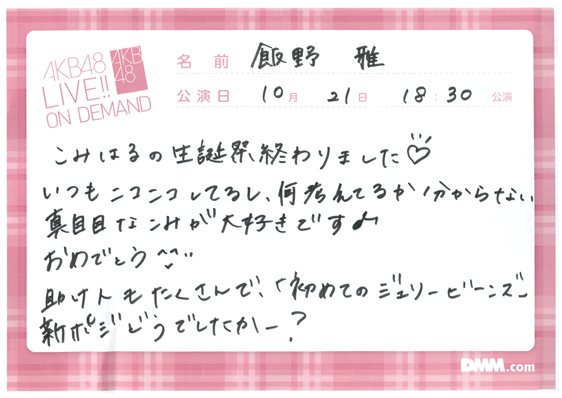 AKB48
LIVE!!
ON DEMAND
AKB
48
名前 飯野 雅
公演日 10月 21日 18:30 公演
こみはるの生誕祭終わりました♡
いつもニコニコしてるし、何考えてるか分からない
真面目なこみが大好きです♪
おめでとう^^
助け人もたくさんで、「初めてのジェリービーンズ」
新ポジどうでしたかー?
DMM.com